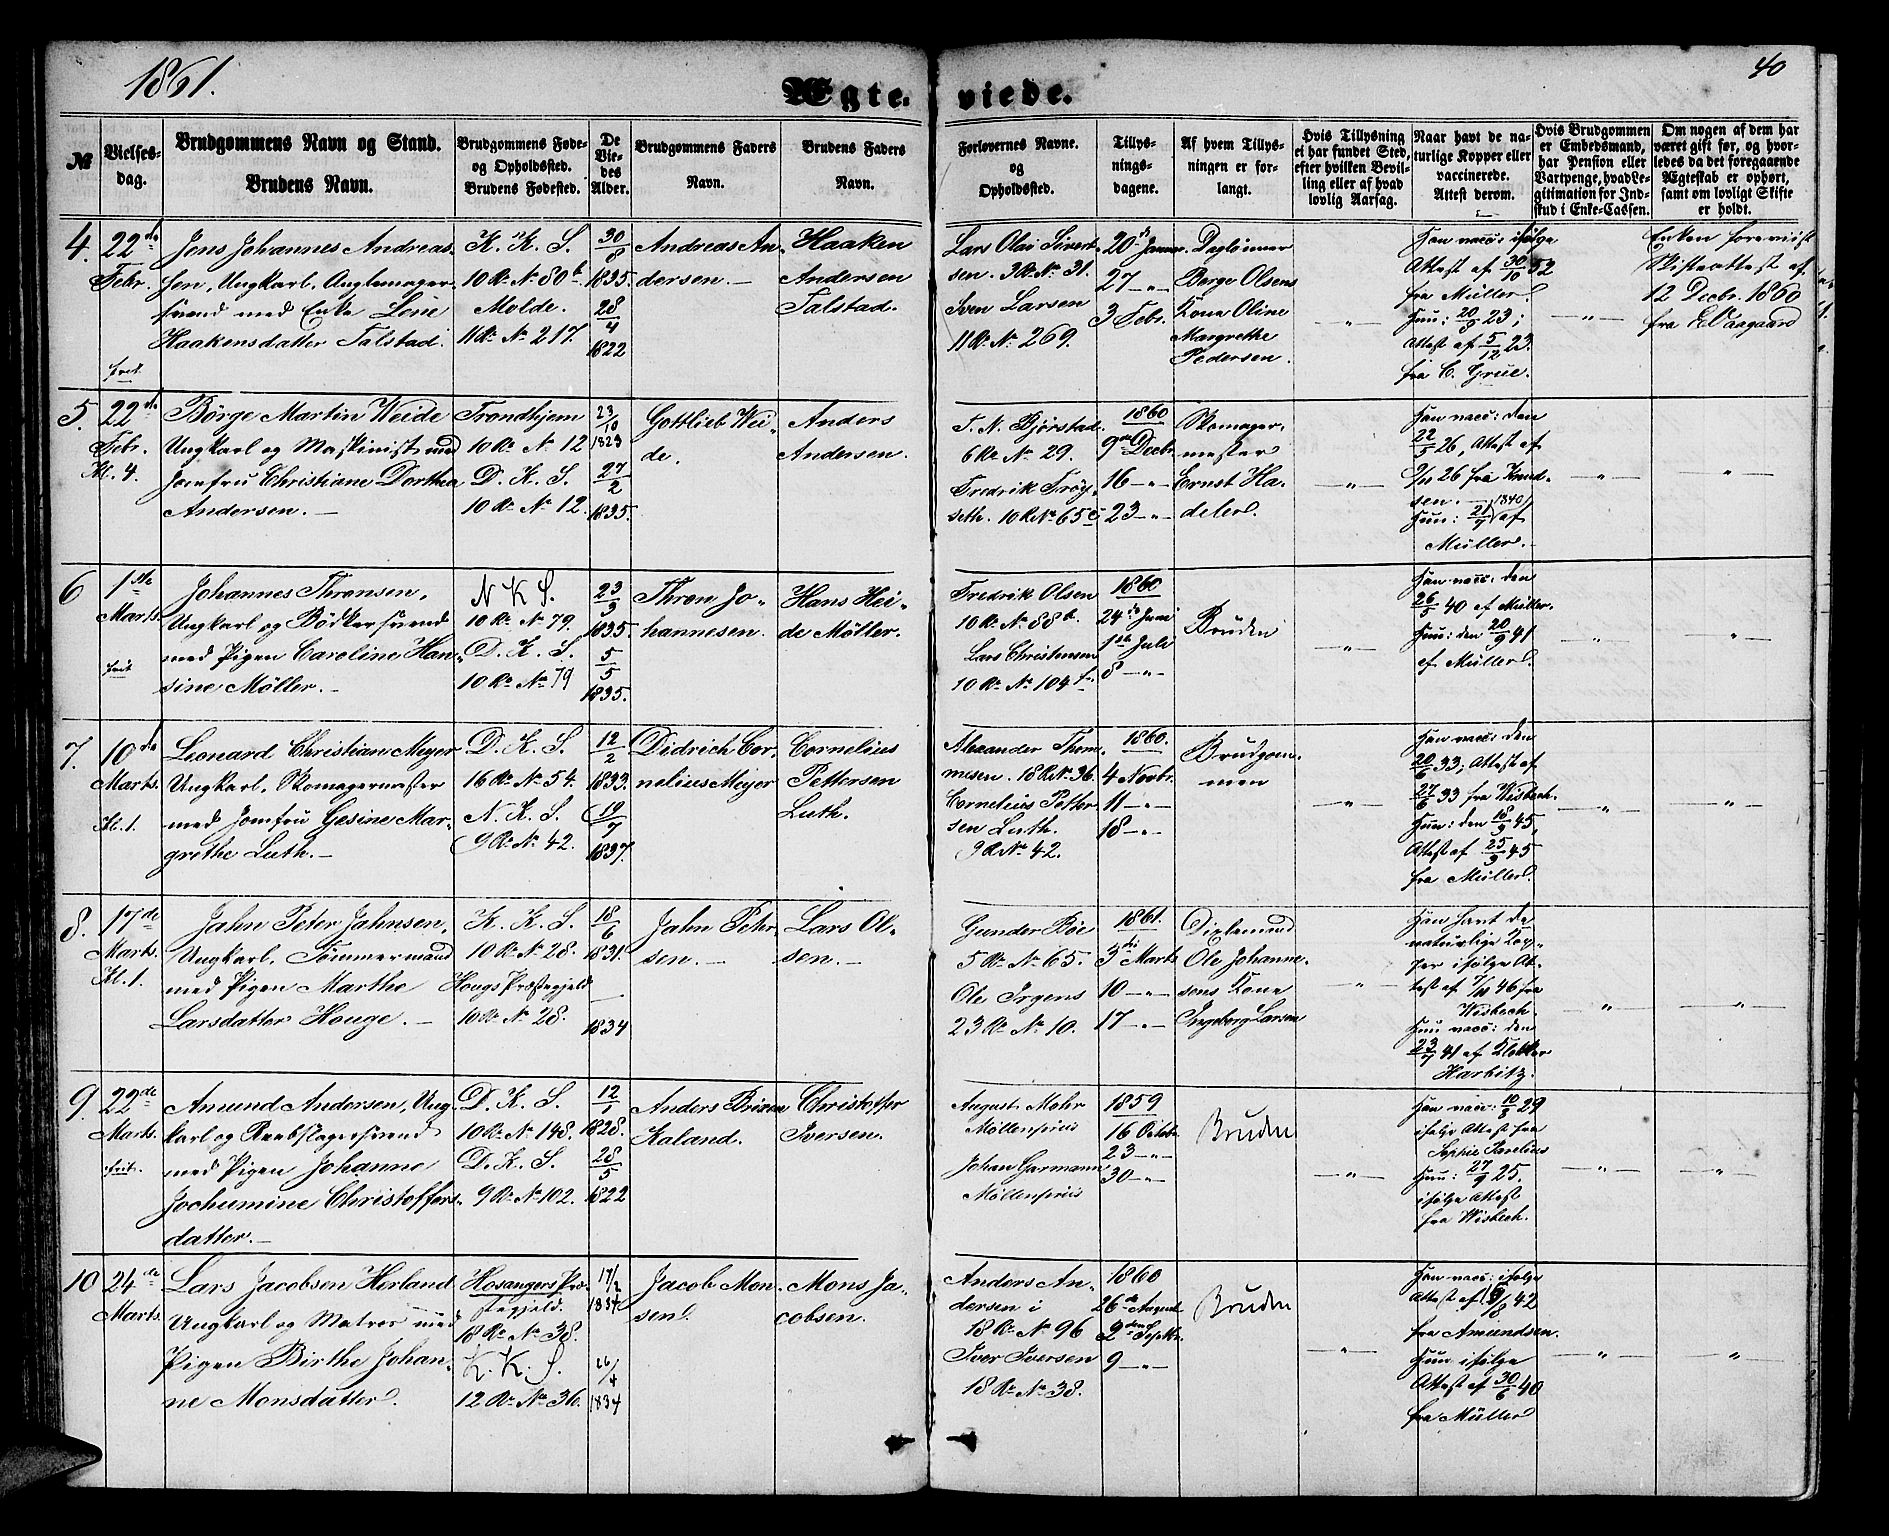 1861.
40
Ægte-viede.
№
Vielses-
dag.
Brudgommens Navn og Stand.
Brudens Navn.
Brudgommens Føde-
og Opholdssted.
Brudens Fødested.
De
Vie-
des
Alder.
Brudgommens Faders
Navn.
Brudens Faders
Navn.
Forlovernes Navne.
og
Opholdssted.
Tillys-
nings-
dagene.
Af hvem Tillys-
ningen er for-
langt.
Hvis Tillysning
ei har fundet Sted,
efter hvilken Bevil-
ling eller af hvad
lovlig Aarsag.
Naar havt de na-
turlige Kopper eller
vaccinerede.
Attest derom.
Hvis Brudgommen
er Embedsmand,
har Pension eller
Vartpenge, hvad Le-
gitimation for Ind-
skud i Enke-Cassen.
Om nogen af dem har
været gift før, og hvor-
ledes da det foregaaende
Ægteskab er ophørt,
samt om lovligt Skifte
er holdt.
4.
22de
Febr.
frit.
Jens Johannes Andreas-
sen, Ungkarl,
svend med Enke Lene
Haakensdatter Talstad.
K. K. S.
10 R. No 80 b.
Molde.
11 R. No 217.
30/8
1835.
28/4
1822
Andreas An-
dersen. —
Haaken
Andersen
Talstad.
Lars Olai Sivert-
sen. 3 R. No 31.
Sven Larsen
11 R. No 269.
20de Januar.
27 — " —
3 Febr.
Dagleiner
Børge Olsens
Kone Oline
Margrethe
Pedersen.
— " —
Han vacc: ifølge
Attest af 30/10 52
fra Müller.
Hun: 20/9 23;
Attest af 5/12 23.
fra C. Grue.
— " —
Enken foreviist
Skifteattest af
12 Decbr. 1860
fra
5.
22de
Febr.
Kl. 4.
Børge Martin Weide
Ungkarl og Maskinist med
Jomfru Christiane Dorthea
Andersen. —
Trondhjem
10 R. No 12
D. K. S.
10 R. No 12.
23/10
1823
27/2
1835.
Gottlieb Wei-
de.
Anders
Andersen.
T. N. Bjørstad
6 R. No 29.
Fredrik Trøy-
seth. 10 R. No 65 c
1860
9de Decbr.
16 — " —
23 — " —
Skomager-
mester
Ernst Ha-
deler.
— " —
Han vacc: den
22/5 26, Attest af
9/11 26 fra Knud-
sen. —
Hun: 21/9 1840 af
Müller. —
— " —
"
6
1ste
Marts.
frit
Johannes Thronsen,
Ungkarl og Bødkersvend
med Pigen Caroline Han-
sine Møller. —
N. K. S.
10 R. No 79.
D. K. S.
10 R. No 79
23/3
1835.
5/5
1835.
Thron Jo-
hannesen.
Hans Hei-
de Møller.
Fredrik Olsen
10 R. No 88 b.
Lars Christensen
10 R. No 104
1860
24de Juni
1ste Juli
8 — " —
Bruden
— " —
Han vacc: den
26/5 40 af Müller.
Hun: den 20/9 41
af Müller.
— " —
"
7.
10de
Marts.
Kl. 1.
Leonard Christian Meyer
Ungkarl, Skomagermester
med Jomfru Gesine Mar-
grethe Luth. —
D. K. S.
16 R. No 54.
N. K. S.
9 R. No 42.
12/2
1833.
19/7
1837.
Didrich Cor-
nelius Meyer
Cornelius
Pettersen
Luth.
Alexander Thom-
mesen. 18 R. No 36.
Cornelius Petter-
sen Luth.
9 R. No 42.
1860.
4 Novbr.
11 — " —
18 — " —
Brudgom-
men
— " —
Han vacc: den
20/6 33; Attest af
27/6 33 fra Wisbech.
Hun: den 18/9 45,
Attest af 25/9 45
fra Müller.
— " —
— " —
8.
17de
Marts.
Kl. 1.
Jahn Peter Jahnsen,
Ungkarl, Tømmermand
med Pigen Marthe
Larsdatter Houge. —
K. K. S.
10 R. No 28.
Hougs Præstegjeld
10 R. No 28.
18/6
1831.
—
1834
Jahn Peter-
sen. —
Lars Ol-
sen. —
Gunder Bøe
5 R. No 65.
Ole Irgens
23 R. No 10.
1861.
3die Marts
10 — " —
17 — " —
Dixlemand
Ole Johanne-
sens Kone
Ingeborg Larsen
— " —
Han havt de
naturlige Kop-
per ifølge At-
test af 7/10 46 fra
Wisbech.
Hun vacc: den
23/7 41 af Klokker
Harbitz.
— " —
— " —
9.
22de
Marts.
frit.
Amund Andersen, Ung-
karl og Reebslagersvend
med Pigen Johanne
Jochumine Christoffers-
datter. —
D. K. S.
10 R. No 148.
D. K. S.
9 R. No 102.
12/1
1828.
28/5
1822
Anders Brixen
Kaland.
Christoffer
Iversen.
August Mohr
Møllenpriis
Johan Garmann
Møllenpriis
1859
16 Octobr.
23 — " —
30 — " —
Bruden
— " —
Han vacc: 10/8 29
ifølge Attest fra
Sophie
Hun: 27/9 25.
ifølge Attest
fra Wisbech.
— " —
— " —
10
24de
Marts.
Lars Jacobsen Herland
Ungkarl og Matros med
Pigen Birthe Johan-
ne Monsdatter.
Hosangers Præ-
stegjeld.
18 R. No 38.
K. K. S.
12 R. No 36.
17/2
1834
26/4
1834
Jacob Mon-
sen.
Mons Ja-
cobsen.
Anders An-
dersen i
18 R. No 96
Iver Iversen
18 R. No 38.
1860
26de August
2den Septbr.
9 — " —
Bruden
— " —
Han vacc: ifølge
Attest af 9/8 42
fra Amundsen.
Hun ifølge
Attest af 30/6 40
fra Müller
— " —
"